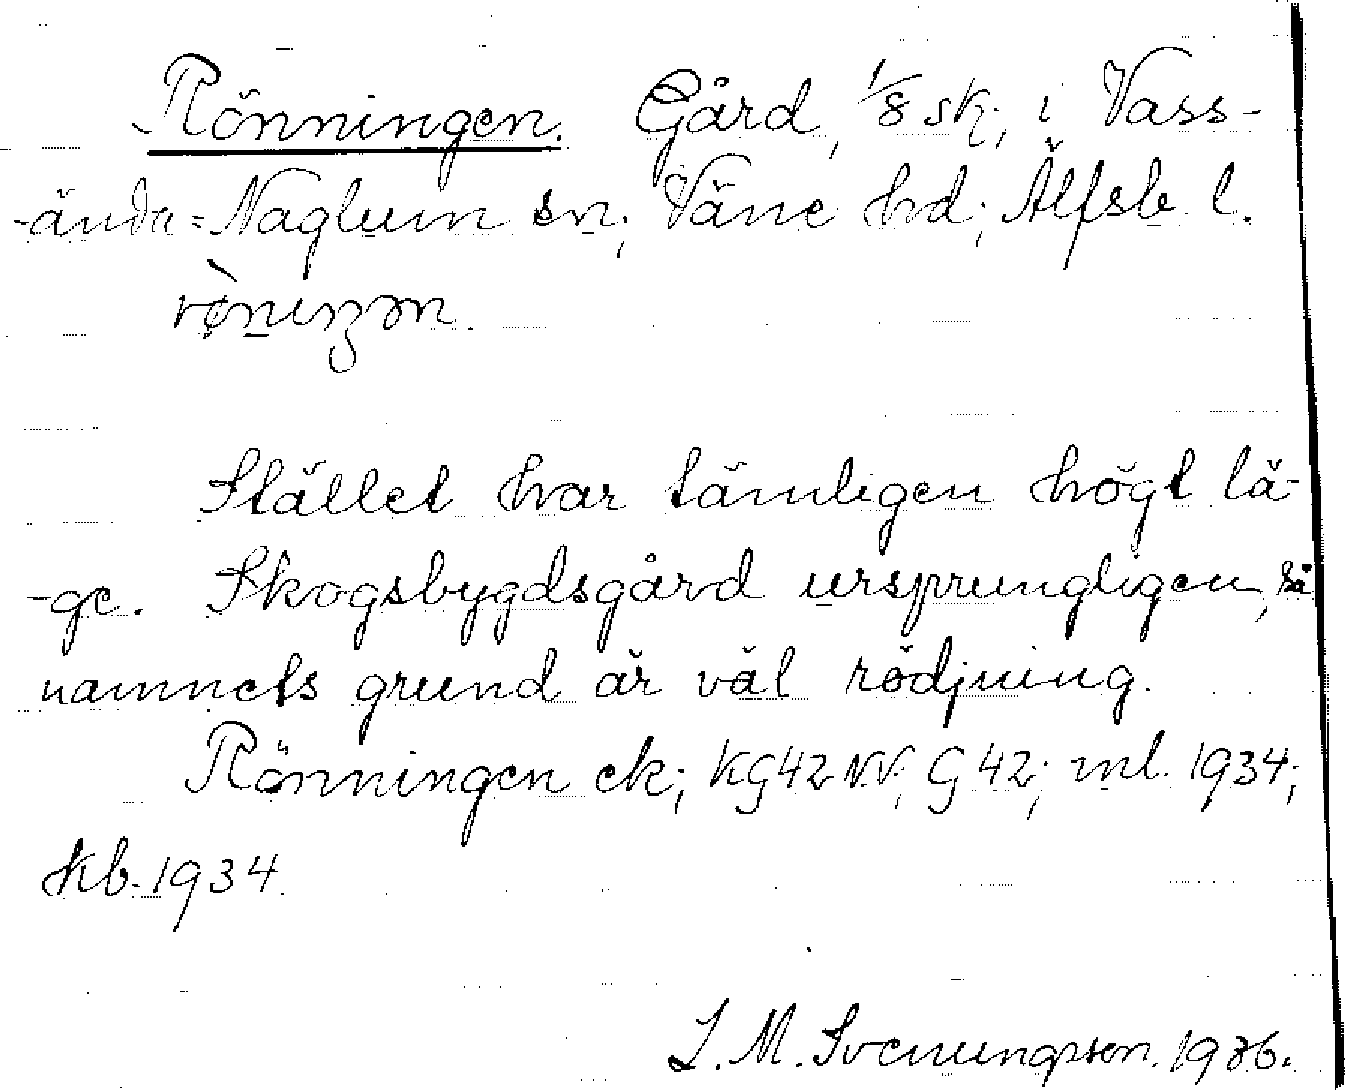 Rönningen. Gård, 1/8 sk., i Vass-
-ända=Naglum sn; Väne hd; Älfsb. l.
Stället har tämligen högt lä-
-ge. Skogsbygdsgård ursprungligen, så
namnets grund är väl rödjning.
Rönningen ek; KG42NV; G42; ml. 1934;
kb. 1934.
J. M. Svenungsson. 1936.